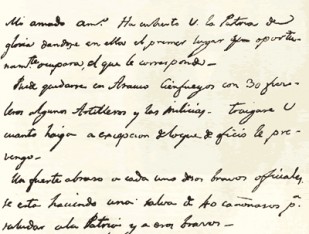 Mi amado am.º Ha cubierto V. la Patria de
gloria dandose en ellos el primer lugar que oportu-
namte ocupara, el que le corresponde -
Puede quedarse en Arauco Cienfuegos con 30 fusi-
leros algunos Artilleros y las milicias. Traigase V
cuanto haiga a excepcion de lo que de oficio le pre-
vengo -
Un fuerte abraso a cada uno de esos bravos officiales,
se está haciendo una salva de 40 cañonasos pª.
saludar a la Patria y a esos bravos -